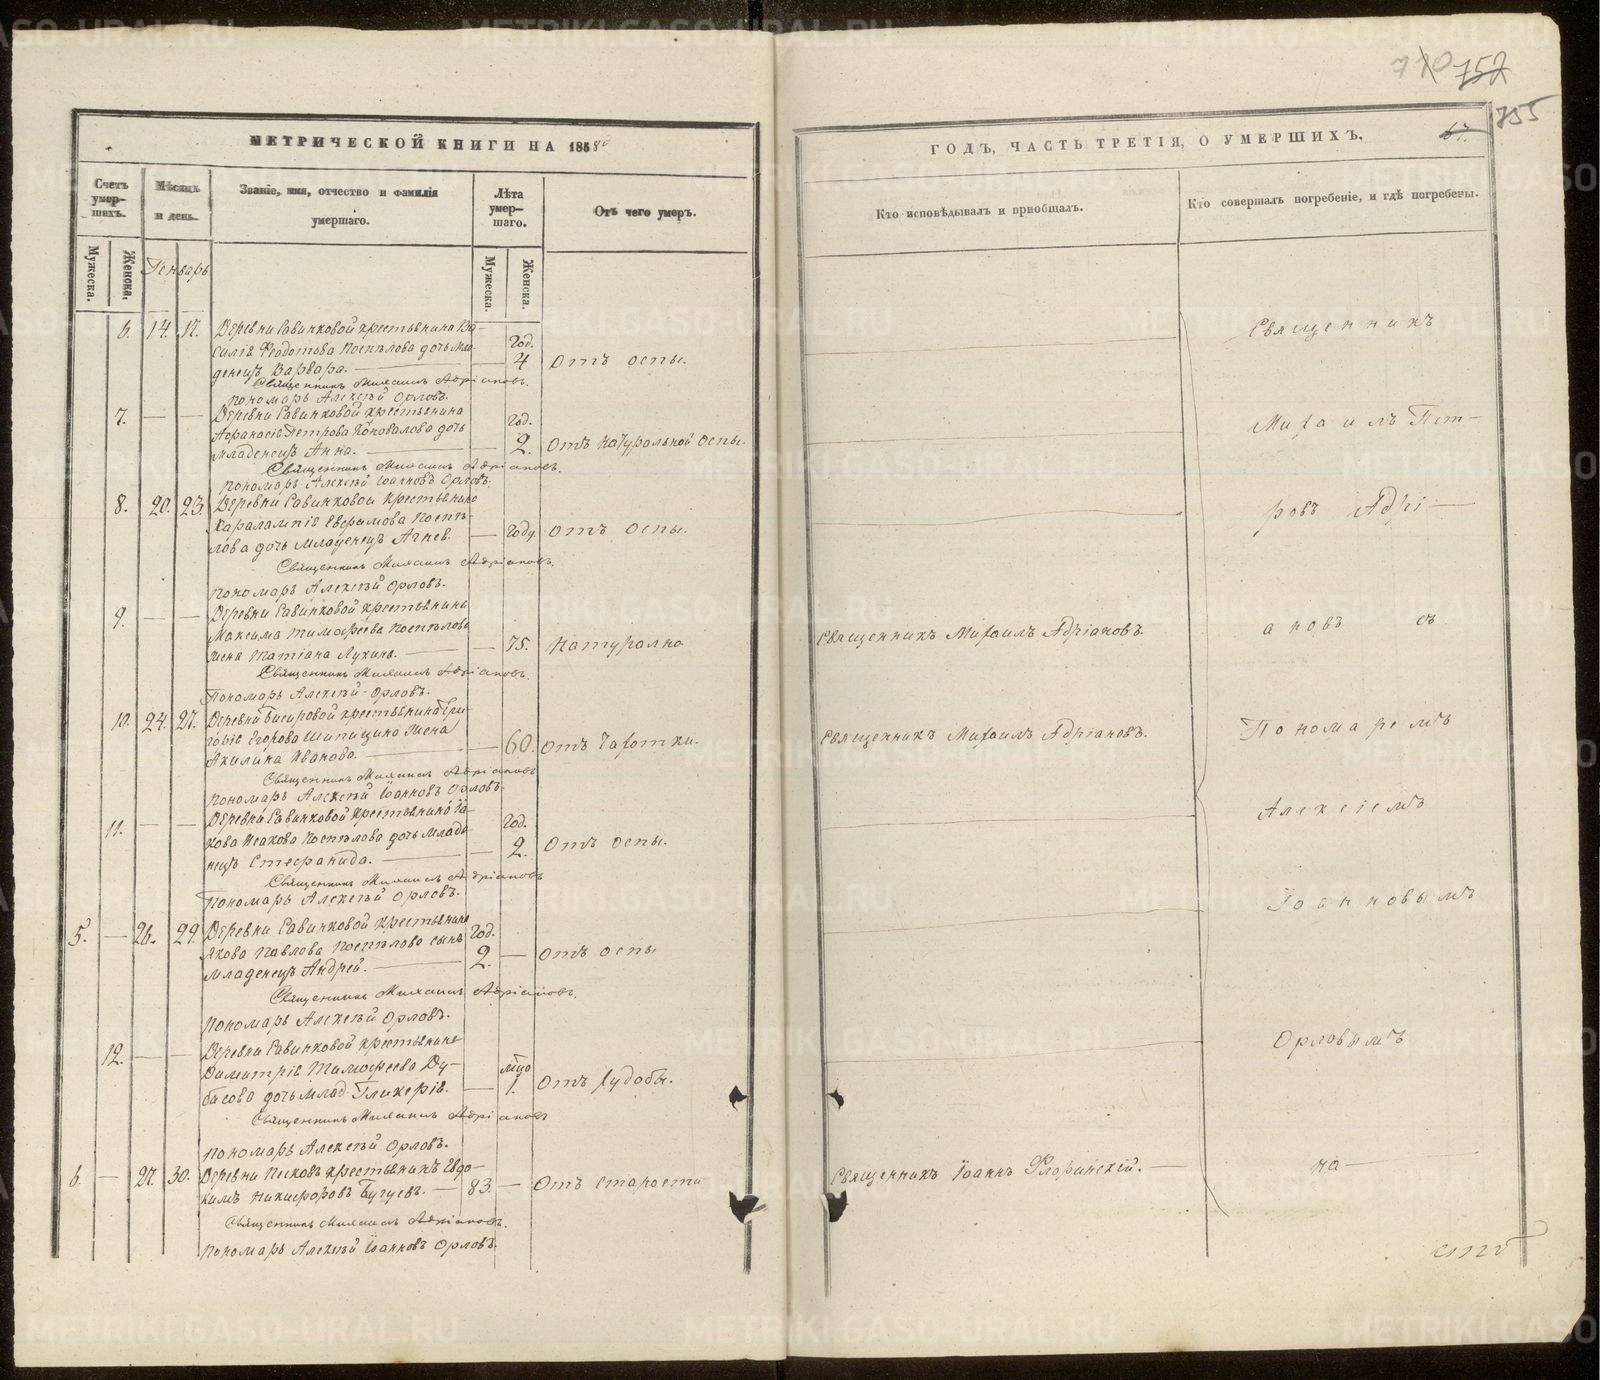 710 752
755
МЕТРИЧЕСКОЙ КНИГИ НА 1858
ГОДЪ, ЧАСТЬ ТРЕТІЯ, О УМЕРШИХЪ.
Счетъ умер-
шихъ.
Мѣсяцъ
и день.
Званіе, имя, отчество и фамилія
умершаго.
Лѣта
умер-
шаго.
Отъ чего умеръ.
Кто исповѣдывалъ и пріобщалъ.
Кто совершалъ погребеніе, и гдѣ погребены.
Мужеска.
Женска.
Генварь
Мужеска.
Женска.
6. 14. 17. Деревни Савинковой крестьянина Ва-
силія Ѳеодотова Поспѣлова дочь мла-
денецъ Варвара. год. 4 отъ оспы.
Священникъ Михаилъ Адріановъ.
пономарь Алексѣй Орловъ.
7. — — Деревни Савинковой крестьянина
Афанасія Петрова Коновалова дочь
младенецъ Анна. год. 2. отъ натуральной оспы.
Священникъ Михаилъ Адріановъ.
пономарь Алексѣй Іоанновъ Орловъ.
8. 20. 23. Деревни Савинковой крестьянина
Харалампія Евфимова Поспѣ-
лова дочь младенецъ году отъ оспы.
Священникъ Михаилъ Адріановъ.
пономарь Алексѣй Орловъ.
9. — — Деревни Савинковой крестьянина
Максима Тимофеева Поспѣлова
жена Татіана Лукина. — 75. натурално
Священникъ Михаилъ Адріановъ.
Пономарь Алексѣй Орловъ.
10. 24. 27. Деревни крестьянина Гри-
горія Егорова Шипицина жена
Акилина Иванова. — 60. отъ чахотки.
Священникъ Михаилъ Адріановъ
пономарь Алексѣй Іоанновъ Орловъ.
11. — — Деревни Савинковой крестьянина Іа-
кова Исакова Поспѣлова дочь младе-
нецъ Стефанида. год. 2. отъ оспы.
Священникъ Михаилъ Адріановъ
Пономарь Алексѣй Орловъ.
5. — 26. 29. Деревни Савинковой крестьянина
Якова Павлова Поспѣлова сынъ
младенецъ Андрей. год. 2. — отъ оспы
Священникъ Михаилъ Адріановъ.
пономарь Алексѣй Орловъ.
12. — — Деревни Савинковой крестьянина
Димитрія Тимофеева Ду-
басова дочь млад. Гликерія. — 1. отъ худобы.
Священникъ Михаилъ Адріановъ
пономарь Алексѣй Орловъ.
6. — 27. 30. Деревни Песковъ крестьянинъ Евдо-
кимъ Никифоровъ — 83. — отъ старости
Священникъ Михаилъ Адріановъ.
пономарь Алексѣй Іоанновъ Орловъ.
Священникъ Михаилъ Адріановъ.
Священникъ Михаилъ Адріановъ.
Священникъ Іоаннъ Флоринскій.
Священникъ
Михаилъ Пет-
ровъ Адрі-
ановъ съ
Пономаремъ
Алексіемъ
Іоанновымъ
Орловымъ
на
METRIKI.GASO-URAL.RU